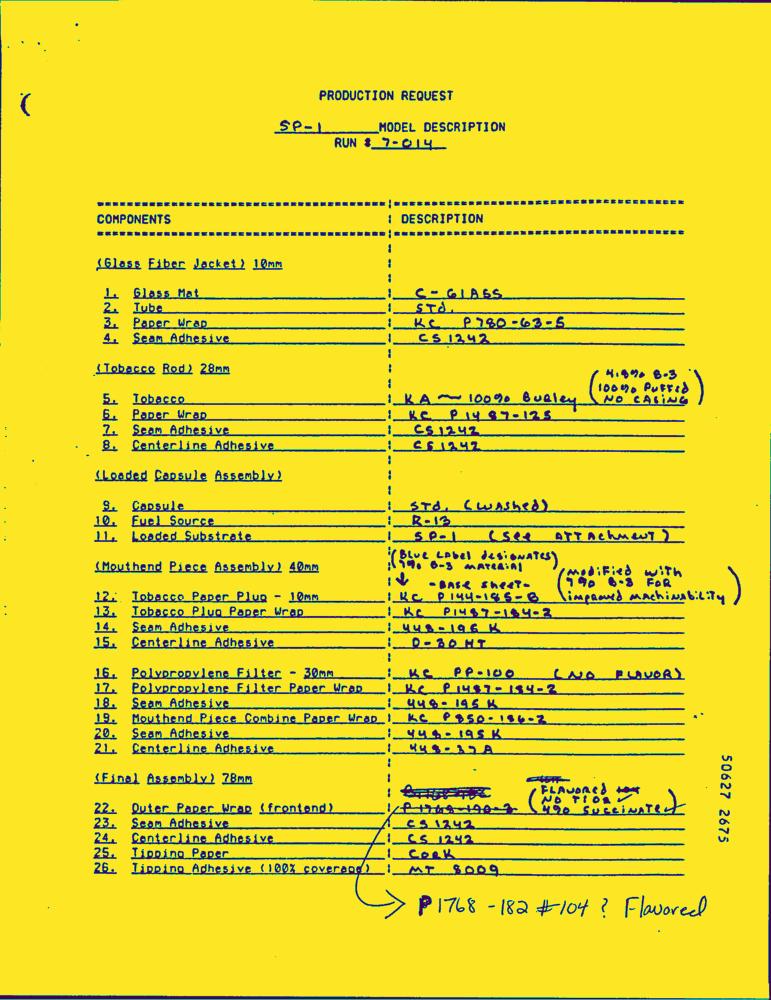 PRODUCTION REQUEST
SP-1 MODEL DESCRIPTION
RUN # 7-014
COMPONENTS DESCRIPTION
(Glass Fiber Jacket) 10mm
1. Glass Mat C-GLASS
2. Tube STd.
3. Paper Wrap KC P780-63-5
4. Seam Adhesive CS 1242
(Tobacco Rod) 28mm (4.8% B-3
100% PUFFED
5. Tobacco KA ~ 100% Burley NO CASING)
6. Paper Wrap KC P 1487-125
7. Seam Adhesive CS 1242
8. Centerline Adhesive CS 1242
(Loaded Capsule Assembly)
9. Capsule STd. (WASHed)
10. Fuel Source R-13
11. Loaded Substrate SP-1 (See ATTAchmenT)
(Blue Label designates)
(Mouthend Piece Assembly) 40mm B-3 MATERIAL (modified with
↓ -BASE SHEET- 7% B-3 FOR
12. Tobacco Paper Plug - 10mm KC P144-185-B improved mAchinability)
13. Tobacco Plug Paper Wrap KC P1487-184-2
14. Seam Adhesive 448-195 K
15. Centerline Adhesive D-30 HT
16. Polypropylene Filter - 30mm KC PP-100 (NO FLAVOR)
17. Polypropylene Filter Paper Wrap KC P1487-184-2
18. Seam Adhesive 448-195 K
19. Mouthend Piece Combine Paper Wrap KC P850-186-2
20. Seam Adhesive 448-195 K
21. Centerline Adhesive 448-37A
(Final Assembly) 78mm (FLAVORED
NO TIO2 ✓
22. Outer Paper Wrap (frontend) P1768-190-2 4% SUCCINATE)
23. Seam Adhesive CS 1242
24. Centerline Adhesive CS 1242
25. Tipping Paper CORK
26. Tipping Adhesive (100% coverage) MT 8009
P1768 -182 #104 ? Flavored
50627 2675